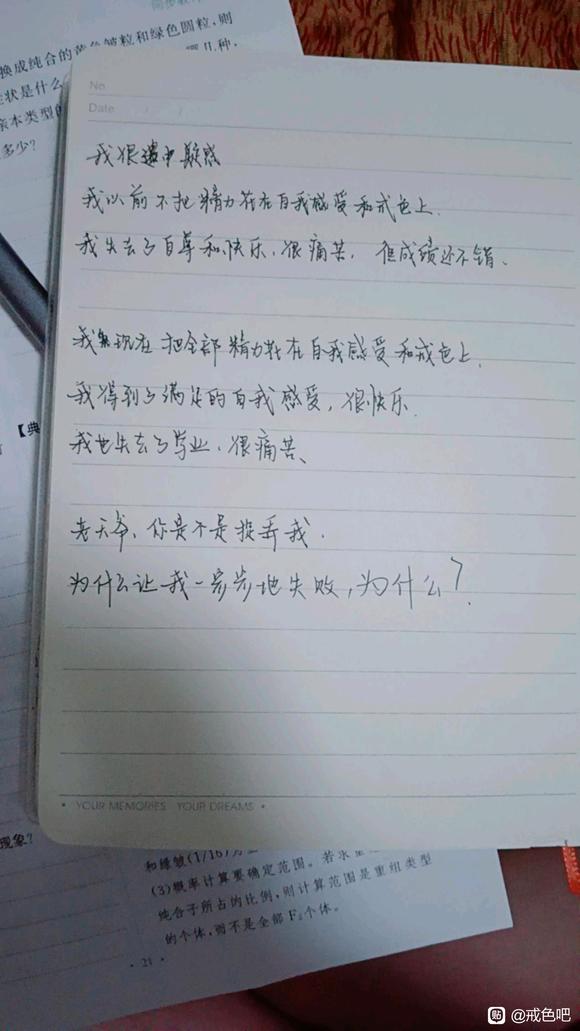 换成纯合的黄色皱粒和绿色圆粒,则
状是什么
亲本类型的
多少?
No
Date
我很遗中疑惑
我以前不把精力花在自我感受和戒色上.
我失去了自尊和快乐,很痛苦,但成绩还不错、
我现在把全部精力花在自我感受和戒色上.
我得到了满足的自我感受,很快乐.
我也失去了学业,很痛苦、
老天爷,你是不是捉弄我.
为什么让我一步步地失败,为什么?
【典
• YOUR MEMORIES YOUR DREAMS •
现象?
和绿皱(1/16)
(3)概率计算要确定范围。若求
纯合子所占的比例,则计算范围是重组类型
的个体,而不是全部 F₂个体。
· 21 ·
贴 @戒色吧